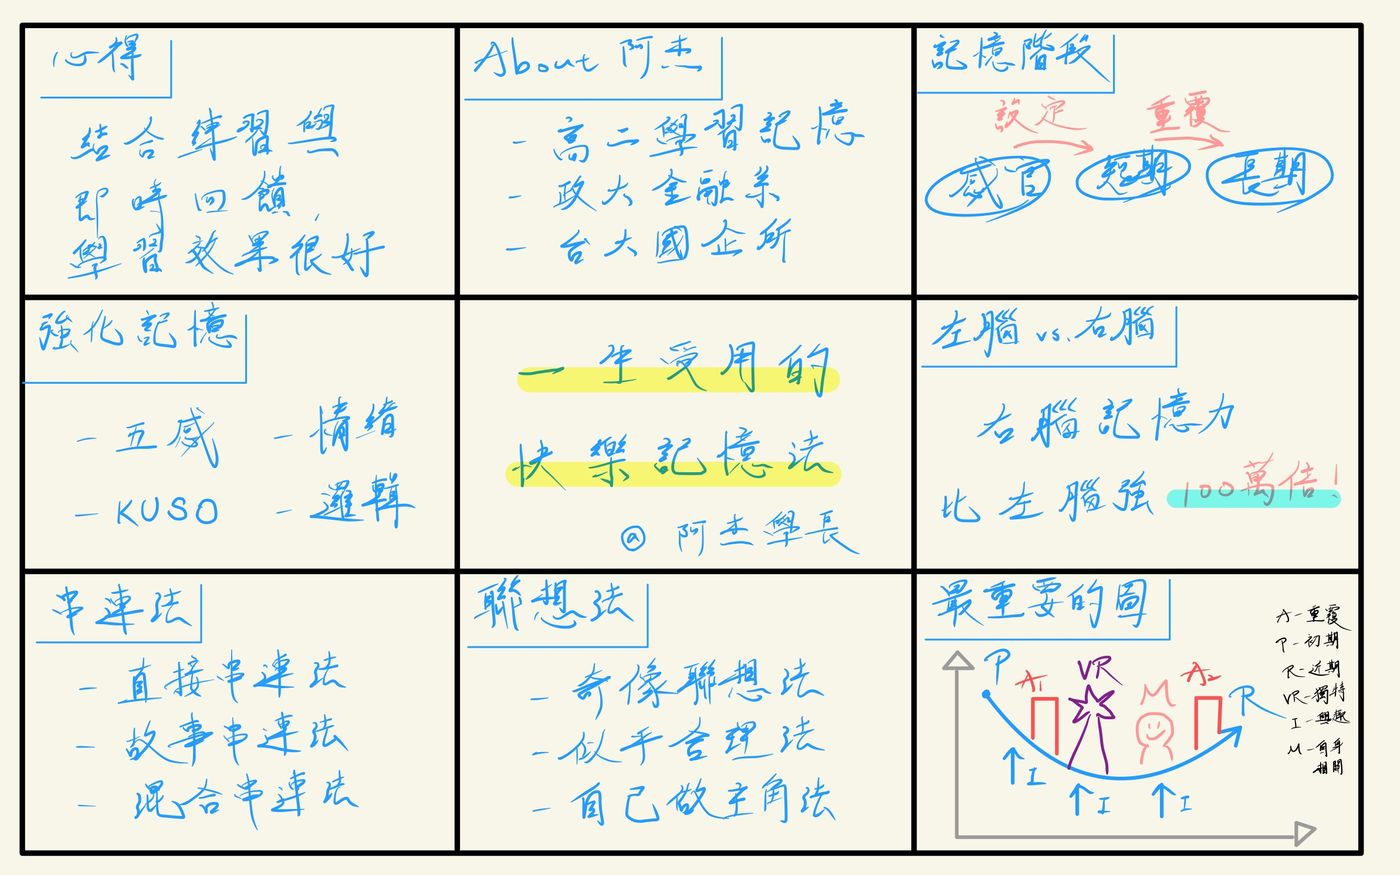 心得
結合練習與
即時回饋，
學習效果很好
About 阿杰
- 高二學習記憶
- 政大金融系
- 台大國企所
記憶階段
設定 重覆
感官 短期 長期
強化記憶
- 五感 - 情緒
- KUSO - 邏輯
一生受用的
快樂記憶法
@ 阿杰學長
左腦 vs. 右腦
右腦記憶力
比左腦強 100萬倍!
串連法
- 直接串連法
- 故事串連法
- 混合串連法
聯想法
- 奇像聯想法
- 似乎合理法
- 自己做主角法
最重要的圖
P A1 VR M A2 R
I I I
A - 重覆
P - 初期
R - 近期
VR - 獨特
I - 興趣
M - 自身
相關